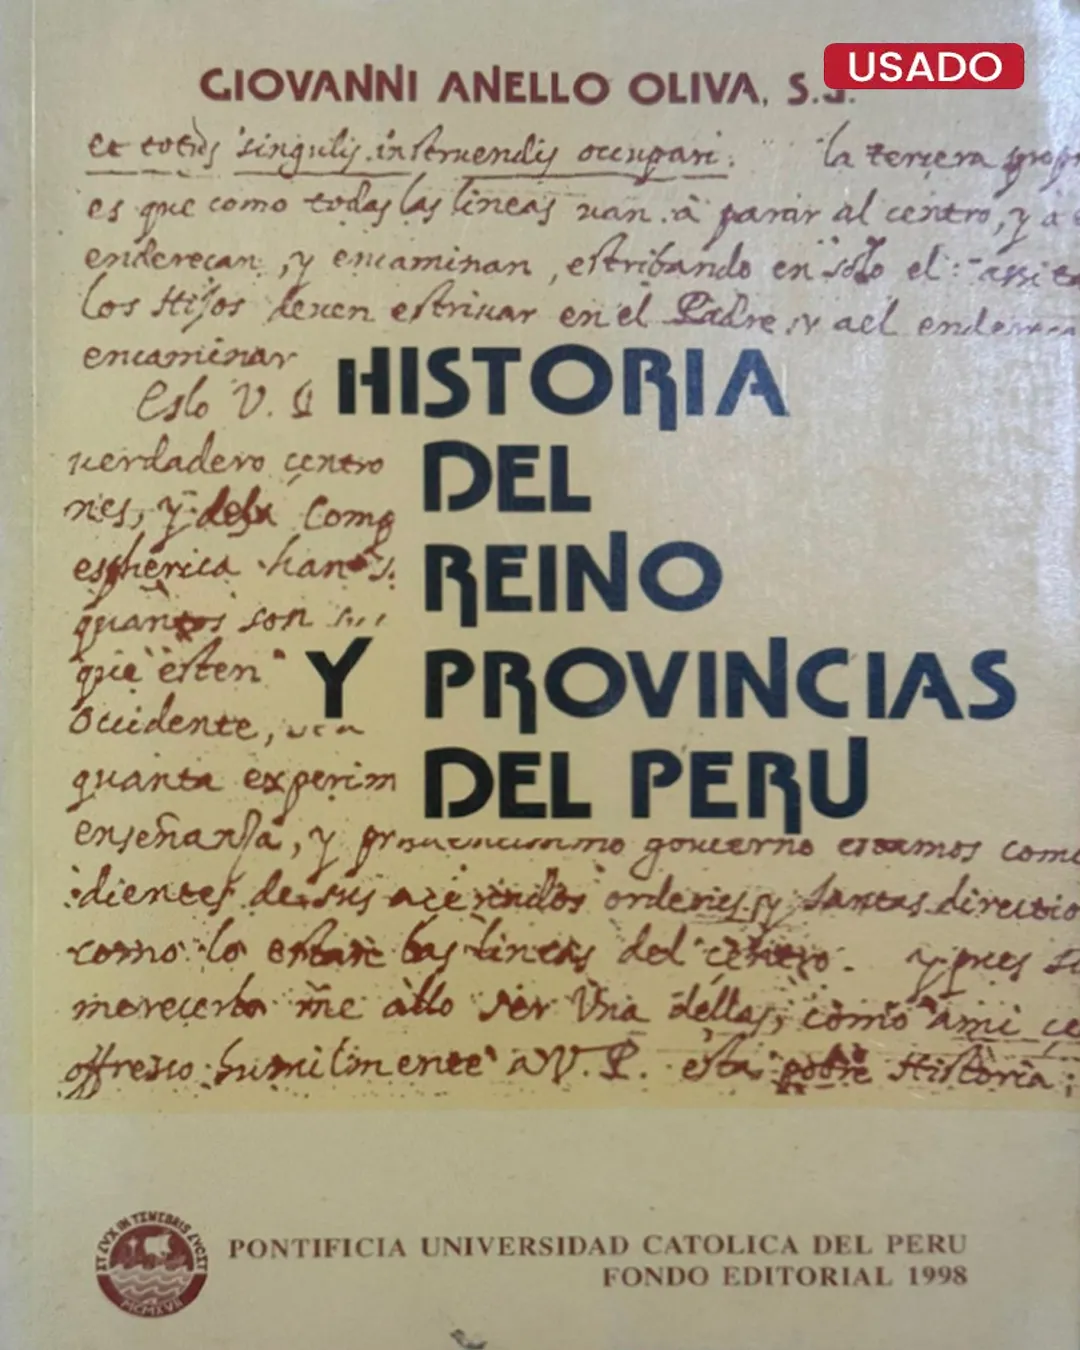 USADO
GIOVANNI ANELLO OLIVA, S.J.
et totus singulis instruendis occupari. la tercera prop
es que como todas las lineas uan à parar al centro, y à e
enderecan, y encaminan, estribando en solo el: assi
los Hijos deuen estriuar en el Padre y a el
encaminar
Esto V. P
verdadero centro
nes, y desta Como
espherica han
quantos son
que esten
Occidente,
quanta experim
enseñansa, y gouierno estamos como
dientes de sus ordenes, y santas directio
como lo estan las lineas del centro. y pues
merecerlo me allo ser Una dellas, como ami
offresco humilmente a V. P. esta pobre Historia
HISTORIA
DEL
REINO
Y PROVINCIAS
DEL PERU
ET LUX IN TENEBRIS LVCET
MCMXVII
PONTIFICIA UNIVERSIDAD CATOLICA DEL PERU
FONDO EDITORIAL 1998